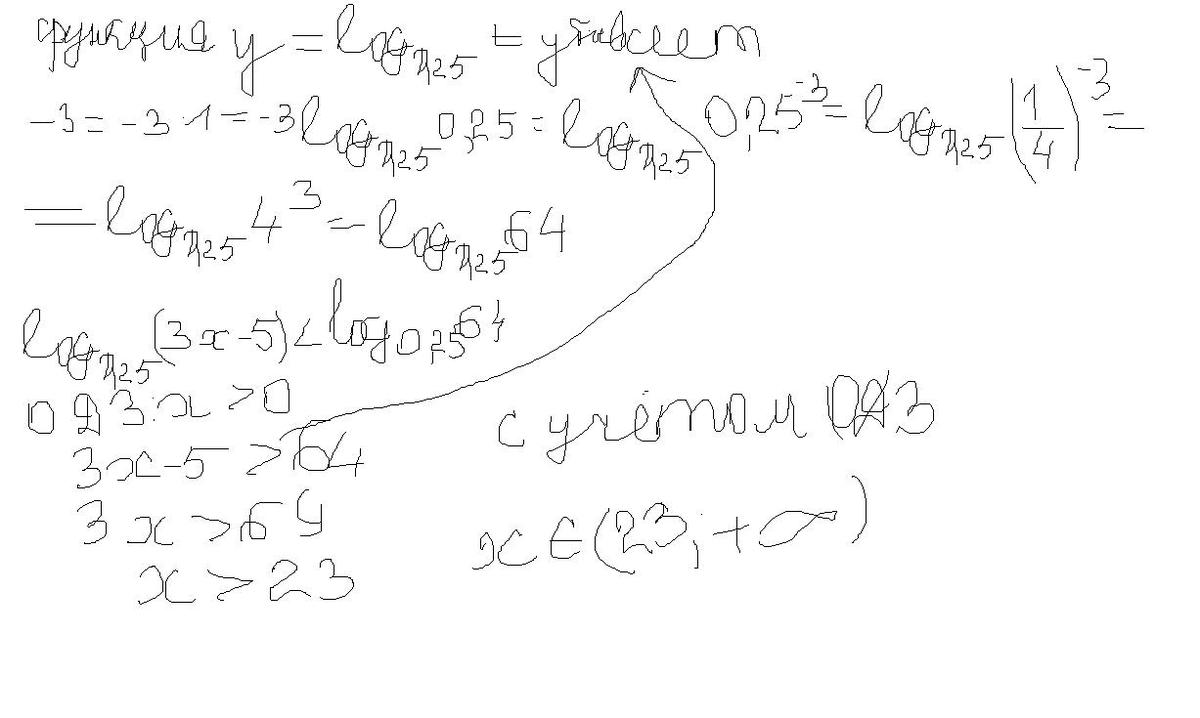 функция y = log₀,₂₅ t убывает
-3 = -3·1 = -3 log₀,₂₅ 0,25 = log₀,₂₅ 0,25⁻³ = log₀,₂₅ (1/4)⁻³ =
= log₀,₂₅ 4³ = log₀,₂₅ 64
log₀,₂₅ (3x-5) < log₀,₂₅ 64
ОДЗ: x > 0
3x-5 > 64
3x > 69
x > 23
с учётом ОДЗ
x ∈ (23; +∞)